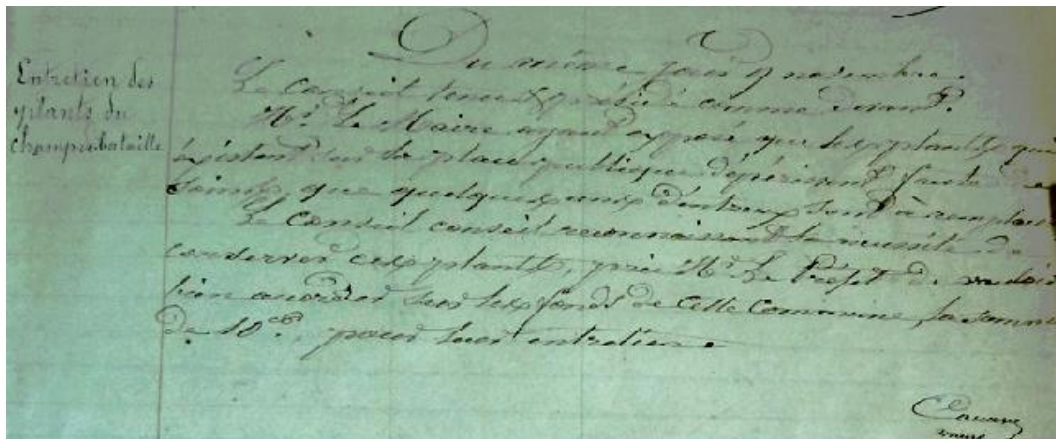 Entretien des
plants du
champ de bataille
Du même jour 9 novembre.
Le Conseil tenu et présidé comme devant.
Mr. Le Maire ayant exposé que les plants qui
existent sur la place publique dépérissent faute de
soins, que quelques uns d'entreux sont à remplacer
Le Conseil conseil reconnaissant la necessité de
conserver ces plants, prie Mr. Le Préfet de vouloir
bien accorder sur les fonds de cette Commune, la somme
de 10 pour leur entretien.
maire